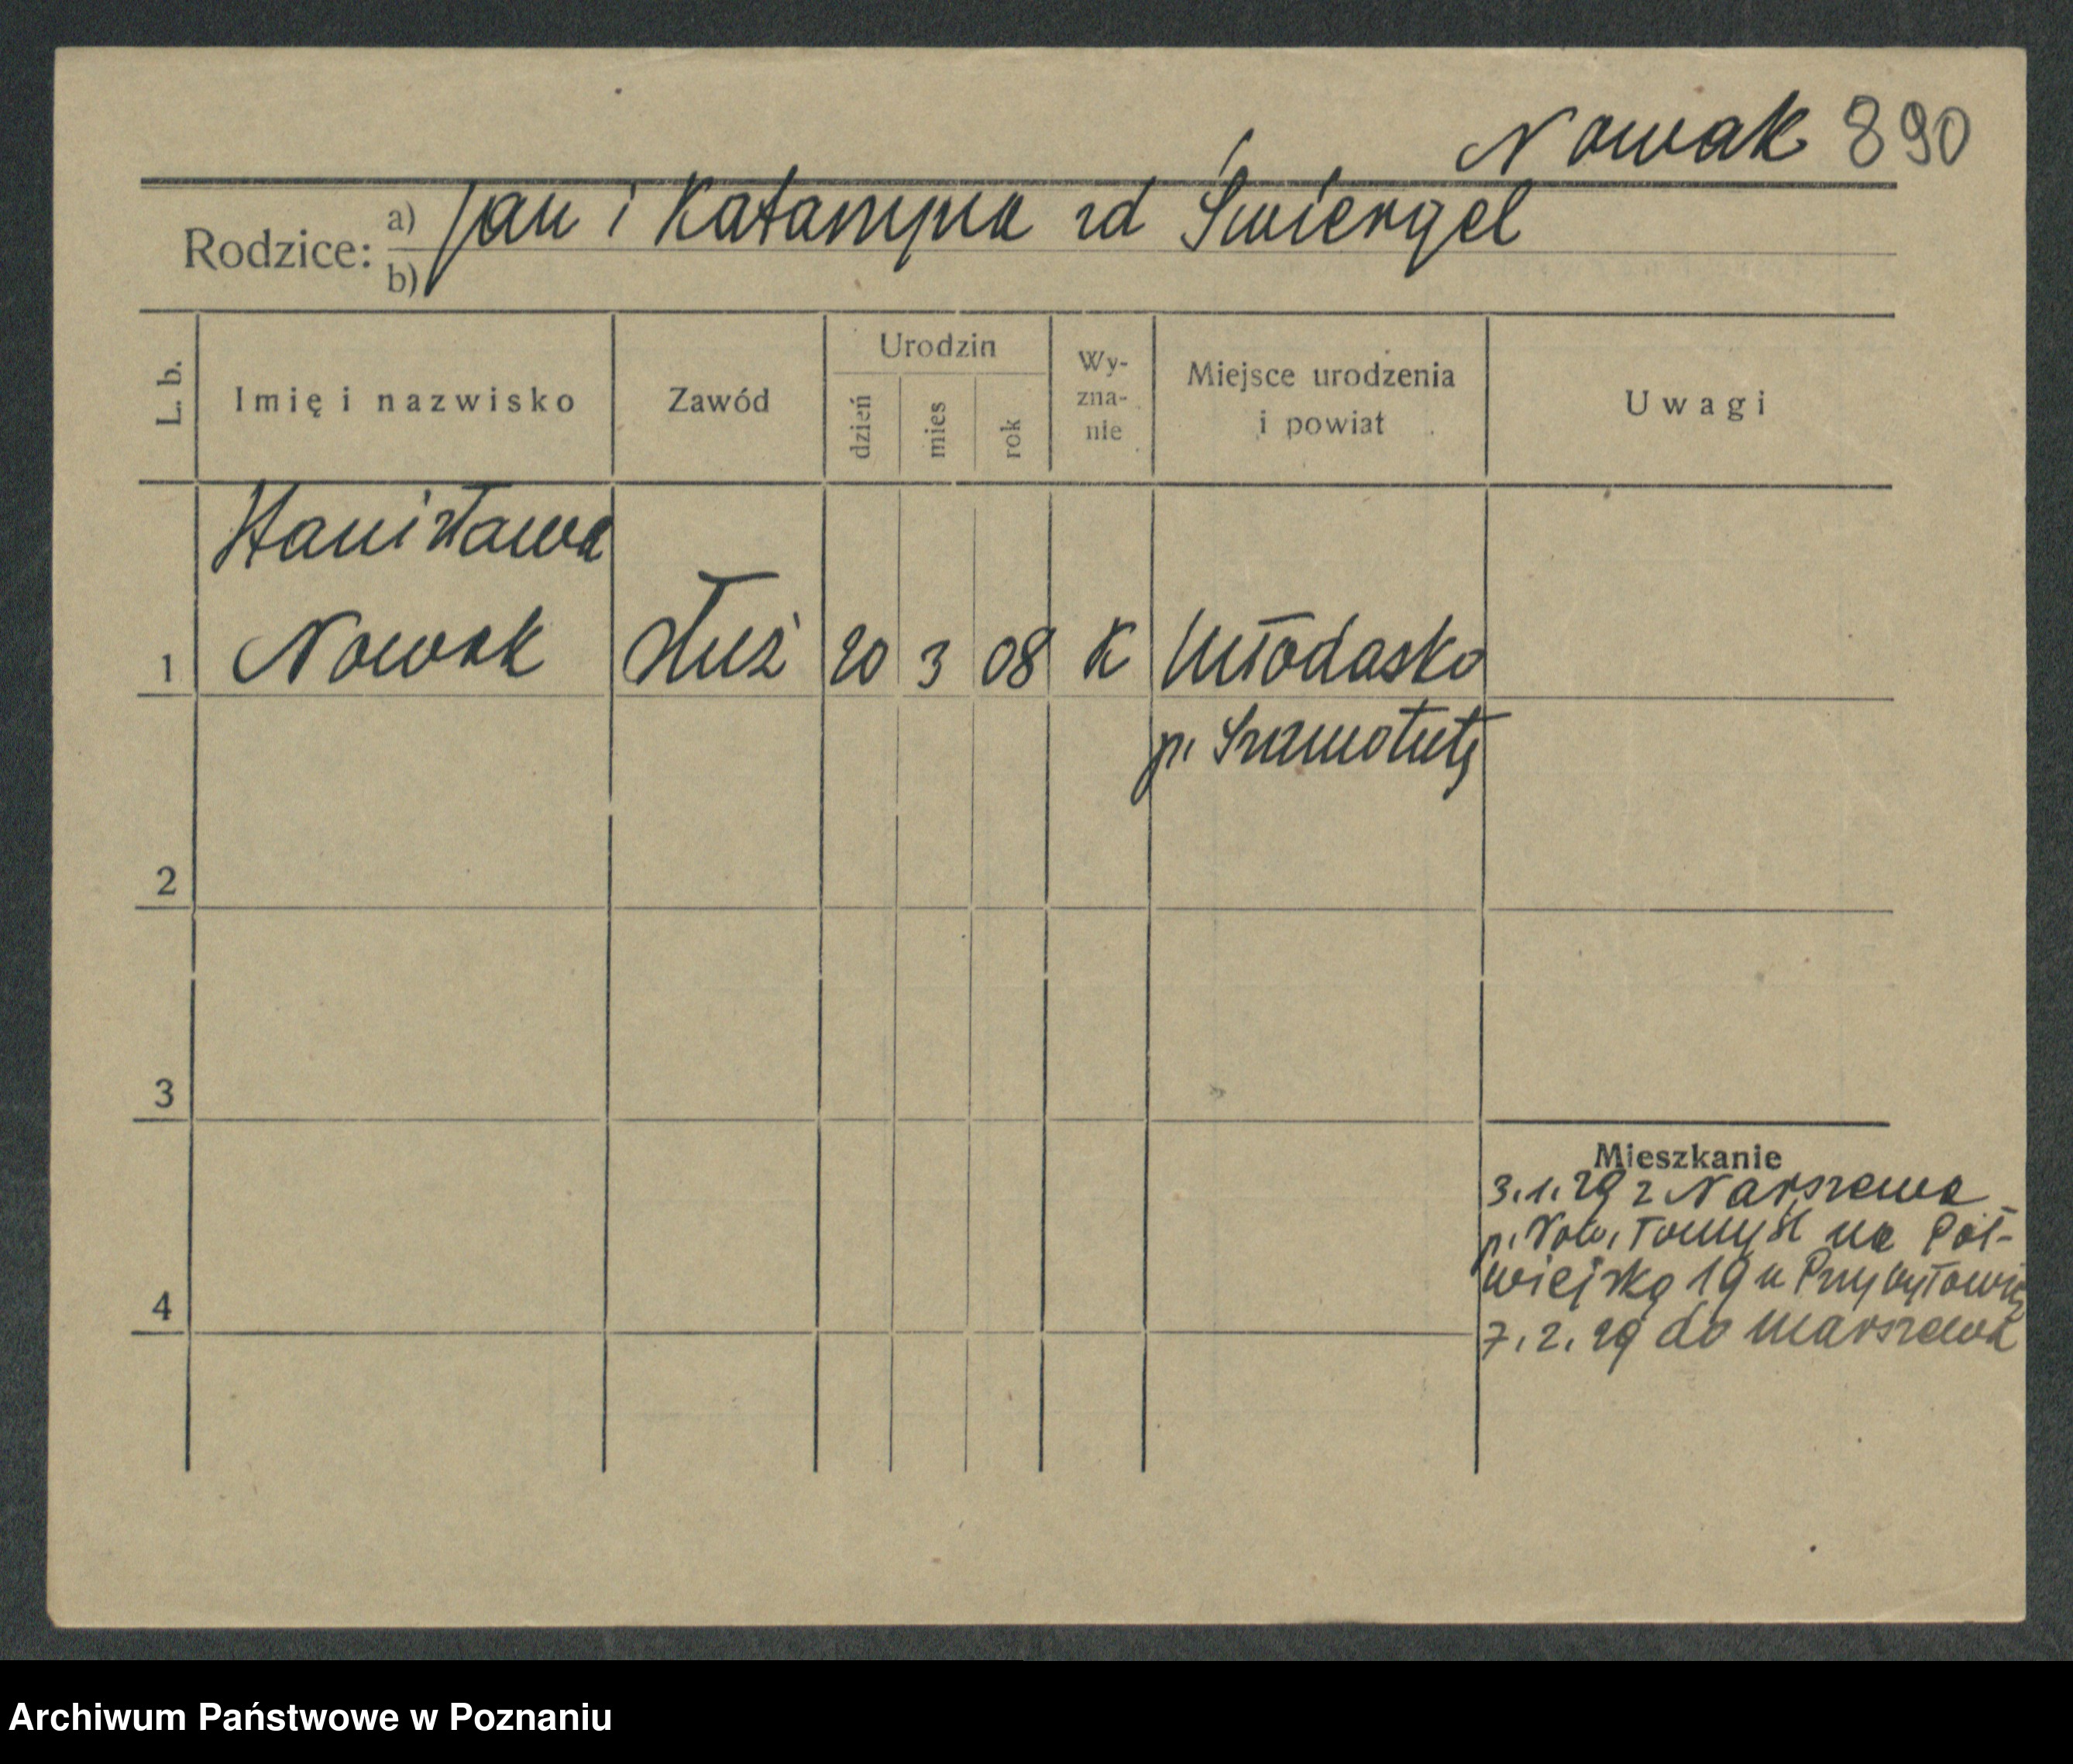 Nowak 890
Rodzice: a) Jan i Katarzyna zd Świergel
b)
L. b.
Imię i nazwisko
Zawód
Urodzin
dzień
mies
rok
Wy-
zna-
nie
Miejsce urodzenia
i powiat
Uwagi
Stanisława
1 Nowak służ 20 3 08 K Młodasko
p. Szamotuły
2
3
Mieszkanie
3.1.29 z Marszewa
p. Now. Tomyśl na Pół-
4 wiejską 19 u
7.2.29 do Marszewa
Archiwum Państwowe w Poznaniu